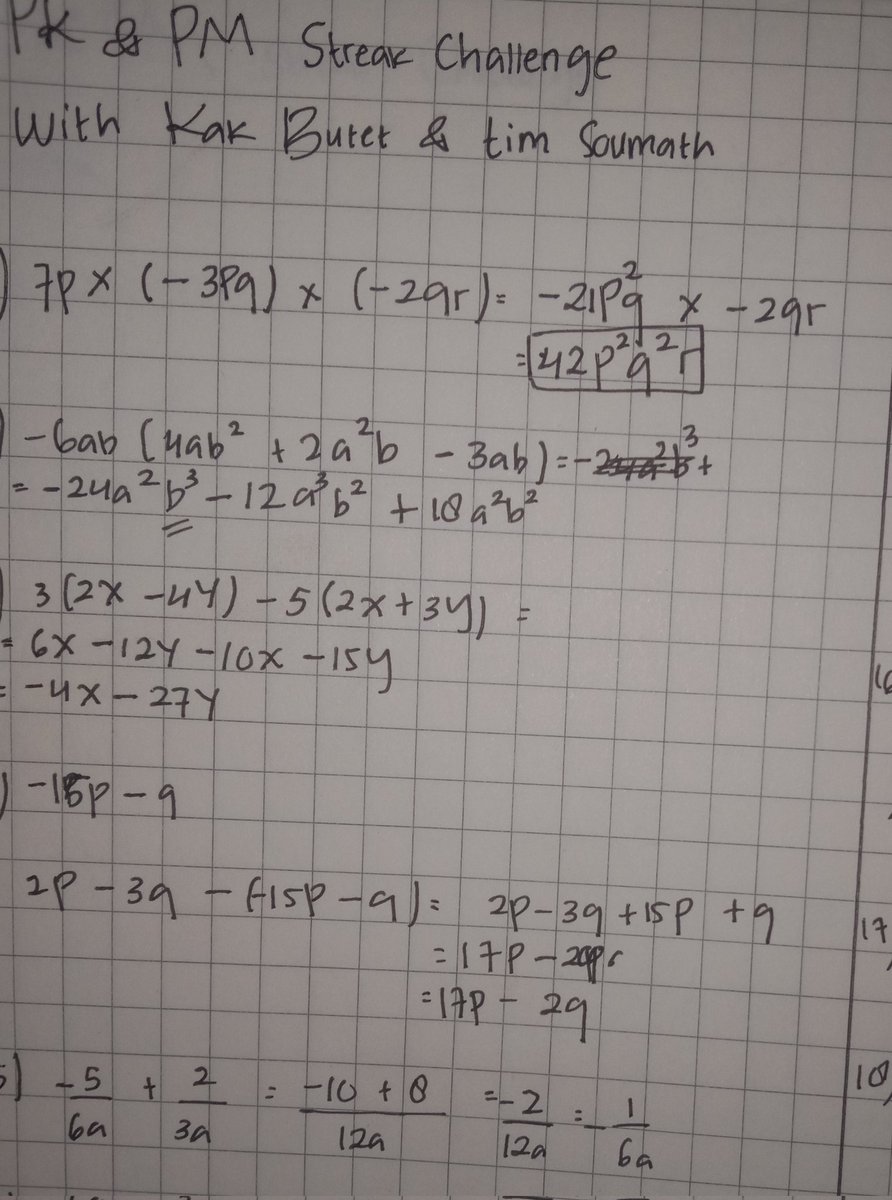 PK & PM Streak Challenge
With Kak Butet & tim Soumath
) 7p × (-3pq) × (-2qr) = -21p²q × -2qr
= 42p²q²r
) -6ab (4ab² + 2a²b - 3ab) = -24a²b³ +
= -24a²b³ - 12a³b² + 18a²b²
) 3(2x - 4y) - 5(2x + 3y) =
= 6x - 12y - 10x - 15y
= -4x - 27y
) -15p - q
2p - 3q - (-15p - q) = 2p - 3q + 15p + q
= 17p -
= 17p - 2q
5) -5/6a + 2/3a = -10 + 8/12a = -2/12a = -1/6a
16
17
18)